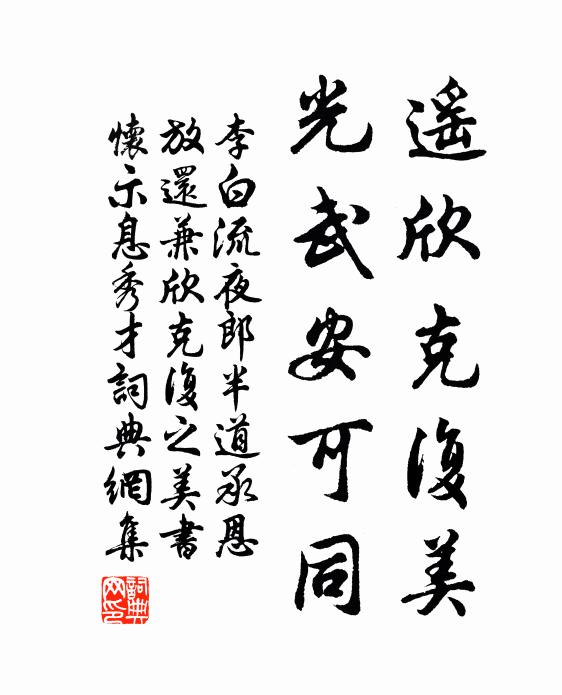 遥欣克復美
光武安可同
李白流夜郎半道承恩
放還兼欣克復之美書
懷示息秀才詞典網集
詞典网印